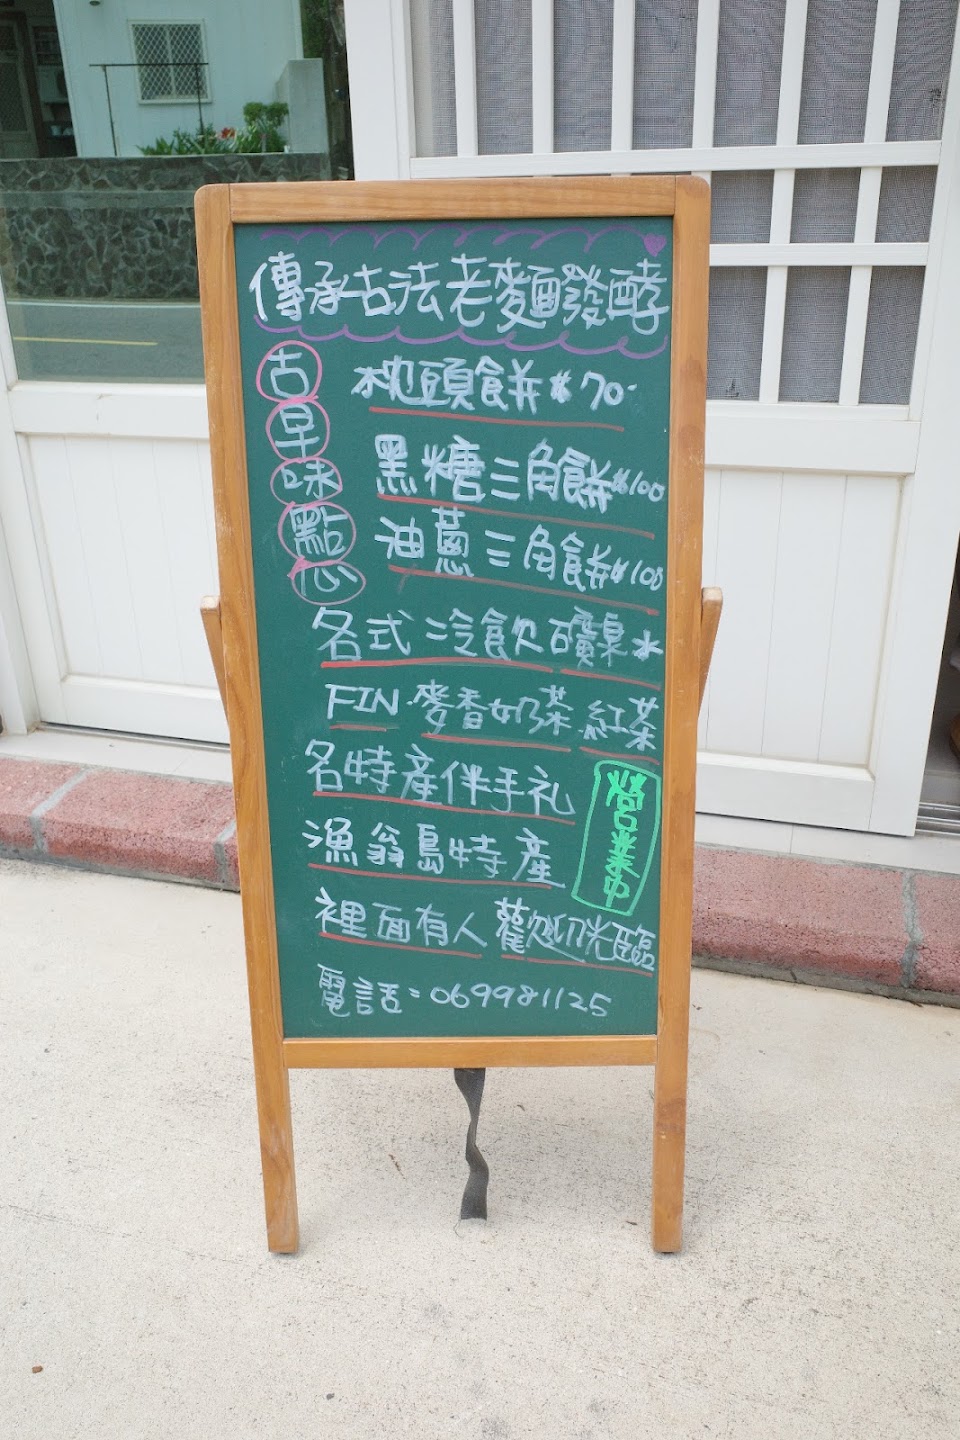 傳承古法老麵發酵
古早味點心
枕頭餅$70
黑糖三角餅$100
油蔥三角餅$100
各式冷飲礦泉水
FIN.麥香奶茶紅茶
名特產伴手礼
漁翁島特產
營業中
裡面有人 歡迎光臨
電話:069981125